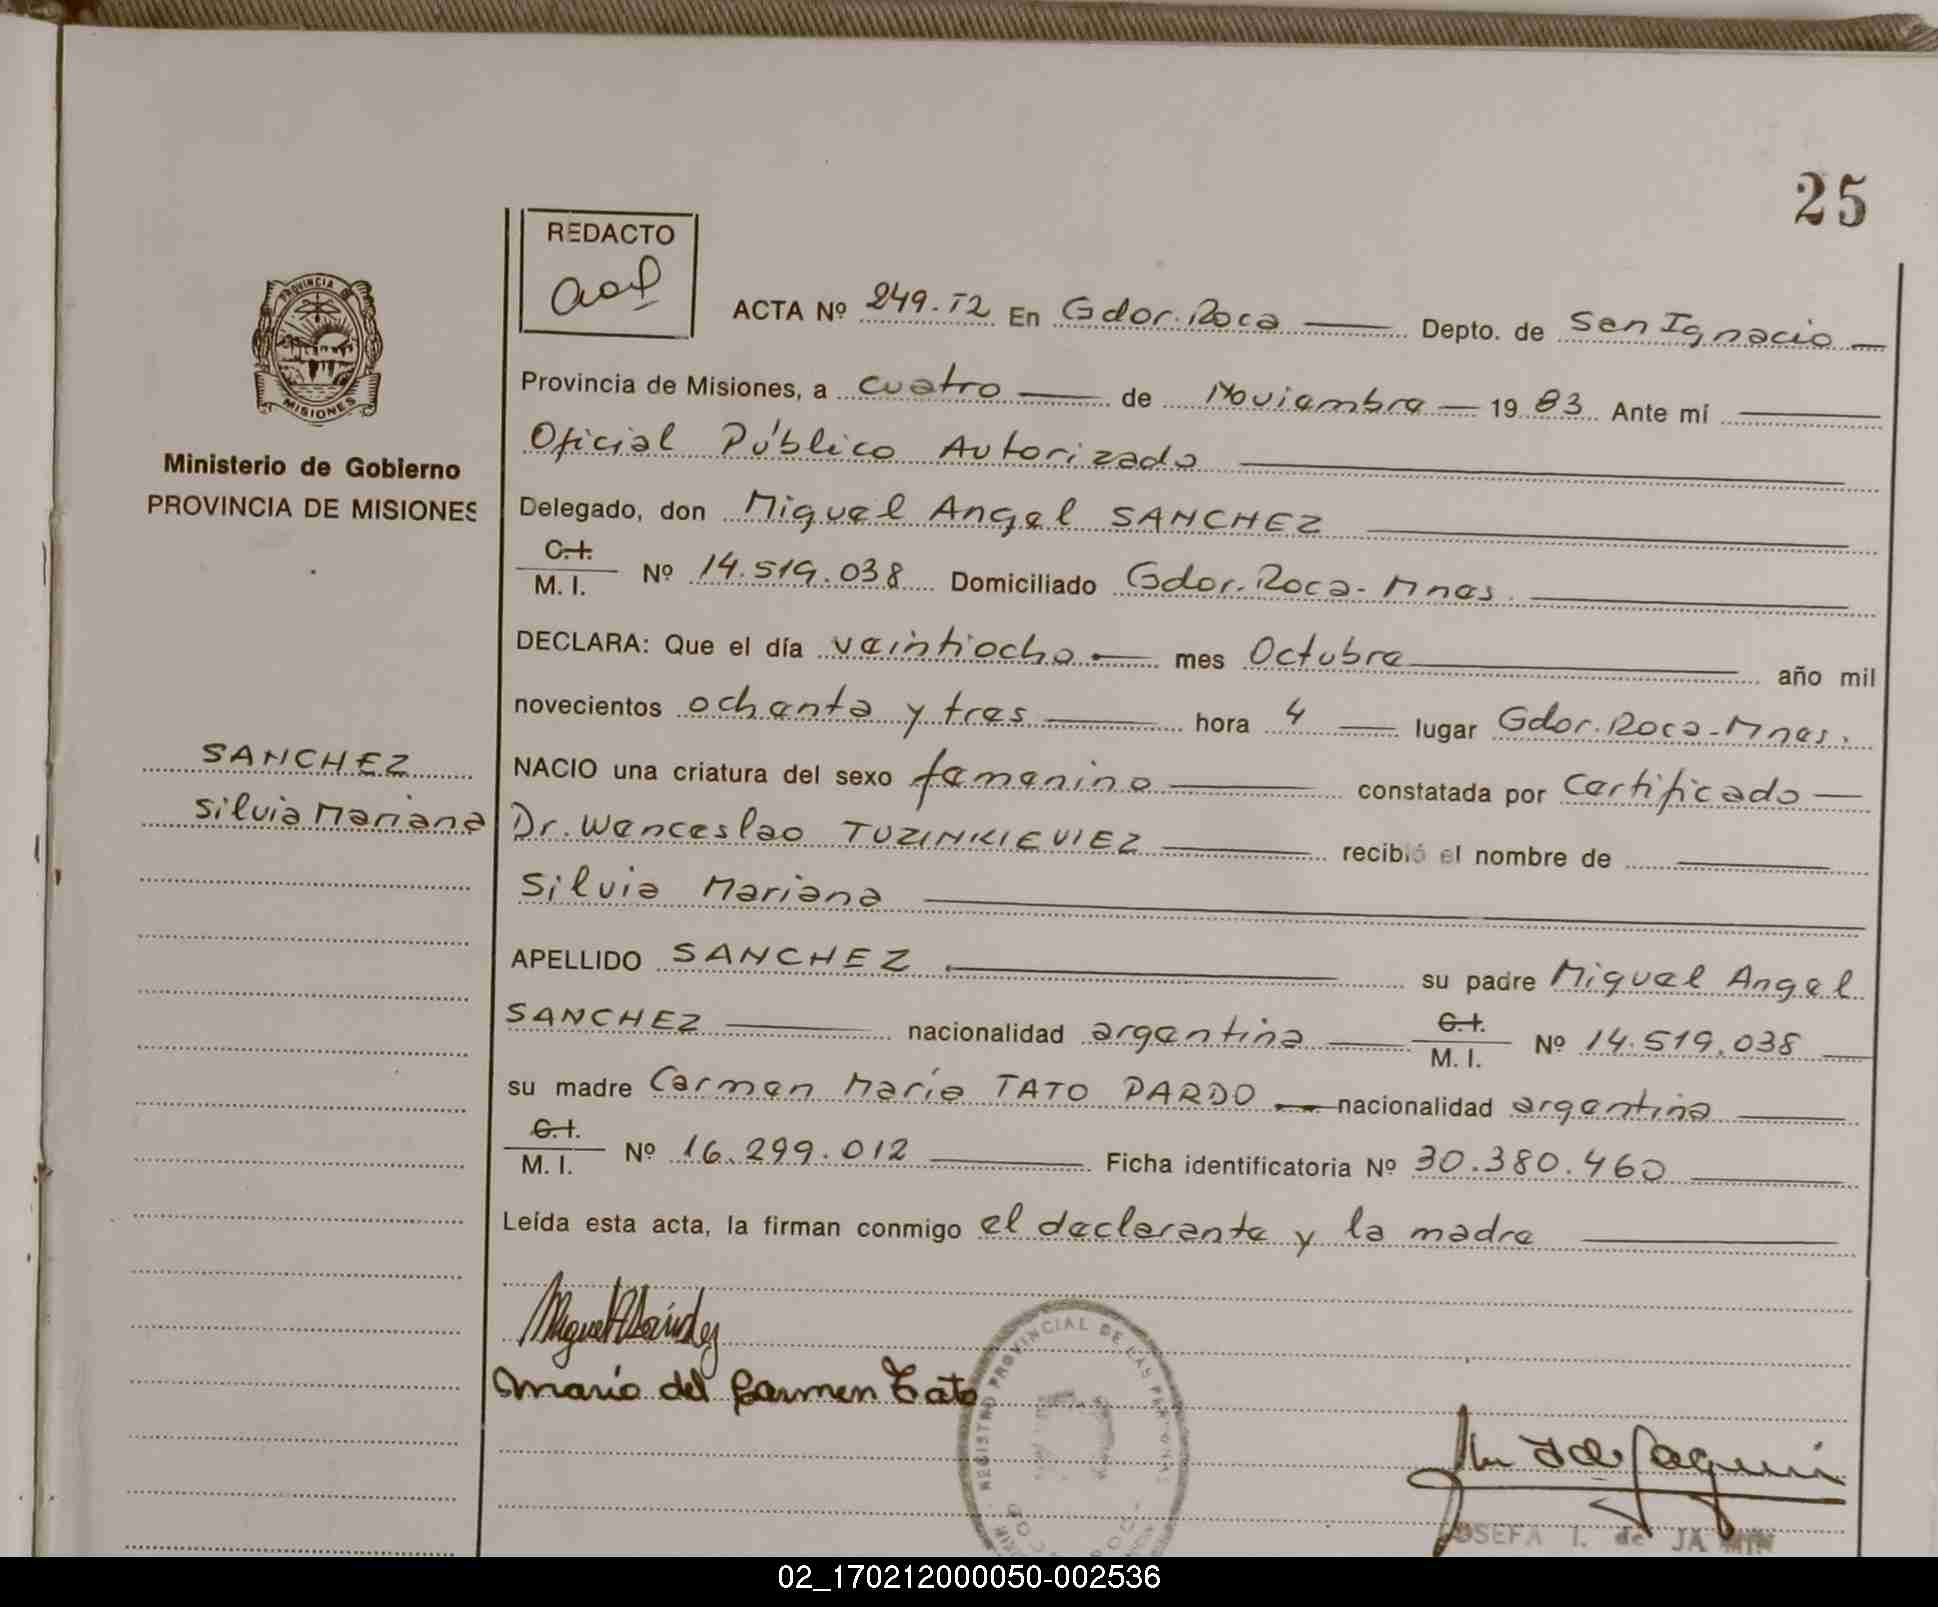 25
REDACTO
ACTA Nº 249.T2 En Gdor. Roca Depto. de San Ignacio
PROVINCIA DE
MISIONES
Provincia de Misiones, a cuatro de Noviembre 1983 Ante mí
Ministerio de Gobierno
PROVINCIA DE MISIONES
Oficial Público Autorizado
Delegado, don Miguel Angel SANCHEZ
C.I.
M. I. Nº 14.519.038 Domiciliado Gdor. Roca - Mnes.
DECLARA: Que el día veintiocho mes Octubre año mil
novecientos ochenta y tres hora 4 lugar Gdor. Roca - Mnes.
SANCHEZ
Silvia Mariana
NACIO una criatura del sexo femenino constatada por Certificado
Dr. Wenceslao TUZINKIEVIEZ recibió el nombre de
Silvia Mariana
APELLIDO SANCHEZ su padre Miguel Angel
SANCHEZ nacionalidad argentina C.I. M. I. Nº 14.519.038
su madre Carmen María TATO PARDO nacionalidad argentina
C.I.
M. I. Nº 16.299.012 Ficha identificatoria Nº 30.380.460
Leída esta acta, la firman conmigo el declarante y la madre
Maria del Carmen Tato
REGISTRO PROVINCIAL DE LAS PERSONAS
JOSEFA I. de
02_170212000050-002536